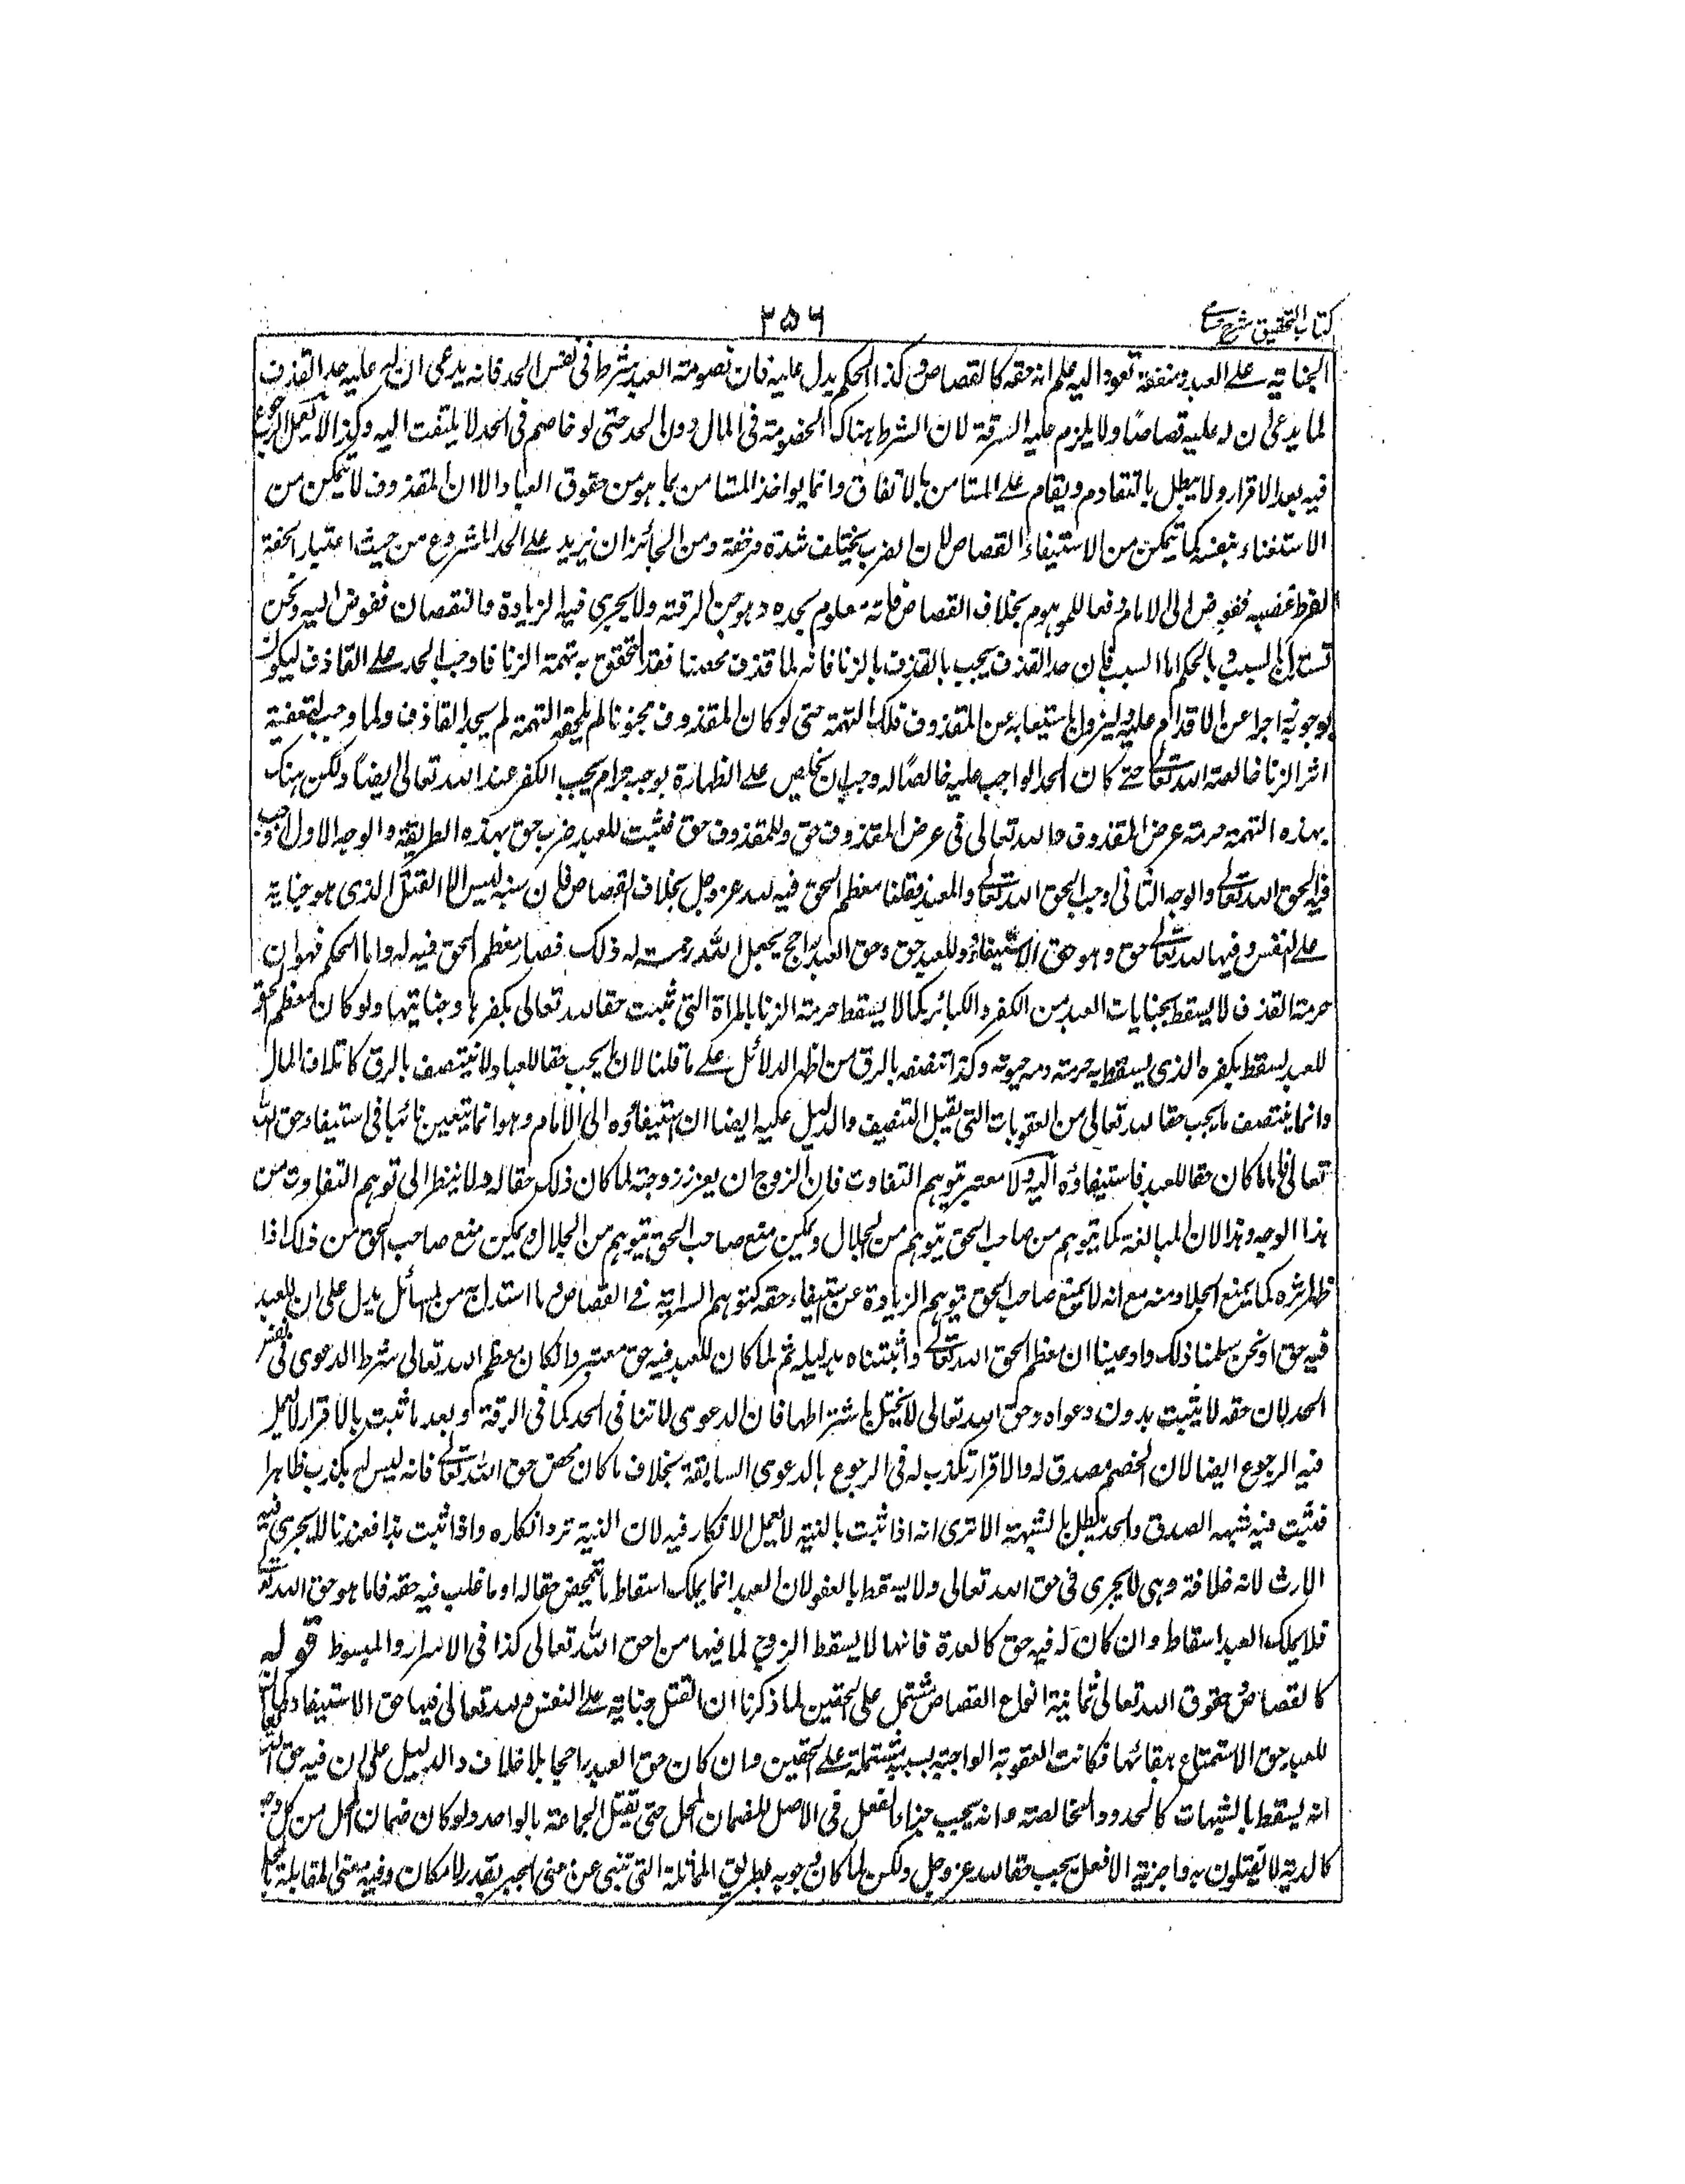 كتاب التحقيق شرح حسامي
٣٥٦
الجناية على العبد ومنفعة تعود اليه علم انه حقه كالقصاص وكذا الحكم يدل عليه فان خصومة العبد شرط فى نفس الحد فانه يدعى ان له عليه حد القذف
كما يدعى ان له عليه قصاصًا ولا يلزم عليه السرقة لان الشرط هناك الخصومة فى المال دون الحد حتى لو خاصم فى الحد لا يلتفت اليه وكذا لا يعمل الرجوع
فيه بعد الاقرار ولا يبطل بالتقادم ويقام على المستامن بالاتفاق وانما يواخذ المستامن بما هو من حقوق العباد الا ان المقذوف لا يتمكن من
الاستيفاء بنفسه كما يتمكن من الاستيفاء القصاص لان الضرب يختلف شدة وخفة ومن الجائز ان يزيد على الحد المشروع من حيث اعتبار الخفة
لفرط غضبه ففوض الى الامام دفعا للموهوم بخلاف القصاص فانه معلوم بحده وهو جز الرقبة ولا يجرى فيه الزيادة والنقصان ففوض اليه ونحن
نستدل بالسبب وبالحكم اما السبب فلان حد القذف يجب بالقذف بالزنا فانه لما قذف محصنا فقد تحقق به تهمة الزنا فاوجب الحد على القاذف ليكون
بوجوبه زاجرا عن الاقدام عليه وليزول باستيفائه عن المقذوف تلك التهمة حتى لو كان المقذوف مجنونا لم يلحقه التهمة لم يحد القاذف ولما وجب لتعفية
اثر الزنا خالصة الله تعالى حتى كان الحد الواجب عليه خالصًا له وجب ان يخلص على الظهارة بوجبه حرام يجب الكفر عند الله تعالى ايضًا ولكن هتك
بهذه التهمة حرمة عرض المقذوف ولله تعالى فى عرض المقذوف حق وللمقذوف حق فثبت للعبد ضرب حق بهذه الطريقة والوجه الاول اوجب
فيه الحق لله تعالى والوجه الثانى اوجب الحق لله تعالى وللعبد فقلنا معظم الحق فيه لله عز وجل بخلاف القصاص فلان سببه ليس الا القتل الذى هو جناية
على النفس وفيها لله تعالى حق وهو حق الاستيفاء وللعبد حق وحق العبد راجح بجعل الله رحمة له ذلك فصار معظم الحق فيه له واما الحكم فهو ان
حرمة القذف لا يسقط بجنايات العبد من الكفر والكبائر كما لا يسقط حرمة الزنا بالمراة التى ثبتت حقا لله تعالى بكفرها وجنايتها ولو كان معظم الحق
للعبد لسقط بكفره الذى يسقط به حرمة دمه وحيوته وكذا تنصفه بالرق من اظهر الدلائل على ما قلنا لان ما يجب حقا للعباد لا يتنصف بالرق كاتلاف المال
وانما يتنصف ما يجب حقا لله تعالى من العقوبات التى يقبل التنصيف والدليل عليه ايضا ان استيفاؤه الى الامام وهو انما يتعين نائبا فى استيفاء حق الله
تعالى فاما ما كان حقا للعبد فاستيفاؤه اليه ولا معتبر بتوهم التفاوت فان للزوج ان يعزر زوجته لما كان ذلك حقا له ولا ينظر الى توهم التفاوت من
هذا الوجه وهذا لان المبالغة كما يتوهم من صاحب الحق يتوهم من الجلاد ويمكن منع صاحب الحق يتوهم من الجلاد ويمكن منع صاحب الحق من ذلك اذا
ظهر اثره كما يمنع الجلاد منه مع انه لا يمنع صاحب الحق بتوهم الزيادة عن استيفاء حقه كتوهم السراية فى القصاص وما استدل به من المسائل يدل على ان للعبد
فيه حق ونحن سلمنا ذلك وادعينا ان معظم الحق لله تعالى واثبتناه بدليله ثم لما كان للعبد فيه حق معتبر وان كان معظمه لله تعالى شرط الدعوى فى نفس
الحد لان حقه لا يثبت بدون دعواه وحق الله تعالى لا يختل باشتراطها فان الدعوى لا تنافى الحد كما فى السرقة وبعد ما ثبت بالاقرار لا يعمل
فيه الرجوع ايضا لان الخصم مصدق له والاقرار تكذب له فى الرجوع بالدعوى السابقة بخلاف ما كان محض حق الله تعالى فانه ليس له مكذب ظاهرا
فثبت فيه شبهه الصدق والحد يبطل بالشبهة الا ترى انه اذا ثبت بالبينة لا يعمل الانكار فيه لان البينة ترد انكاره واذا ثبت هذا فعندنا لا يجرى فيه
الارث لانه خلافة وهى لا يجرى فى حق الله تعالى ولا يسقط بالعفو لان العبد انما يملك اسقاط ما يتمحض حقا له او ما غلب فيه حقه فاما ما هو حق الله تعالى
فلا يملك العبد اسقاط وان كان له فيه حق كالعدة فانها لا يسقط الزوج لما فيها من حق الله تعالى كذا فى الاسرار والمبسوط قوله
كالقصاص حقوق الله تعالى ثمانية انواع القصاص مشتمل على الحقين لما ذكرنا ان القتل جناية على النفس ولله تعالى فيها حق الاستيفاء وكما ان
للعبد حق الاستمتاع ببقائها فكانت العقوبة الواجبة بسببه مشتملة على الحقين وان كان حق العبد راجحا بلا خلاف والدليل على ان فيه حق الله تعالى
انه يسقط بالشبهات كالحدود الخالصة وانه يجب جزاء الفعل فى الاصل لا ضمان المحل حتى يقتل الجماعة بالواحد ولو كان ضمان المحل من كل وجه
كالدية لا يقتلون به واجزية الافعال يجب حقا لله عز وجل ولكن لما كان وجوبه بطريق المماثلة التى تنبى عن معنى الجبر بقدر الامكان وفيه معنى المقابلة بالمحل